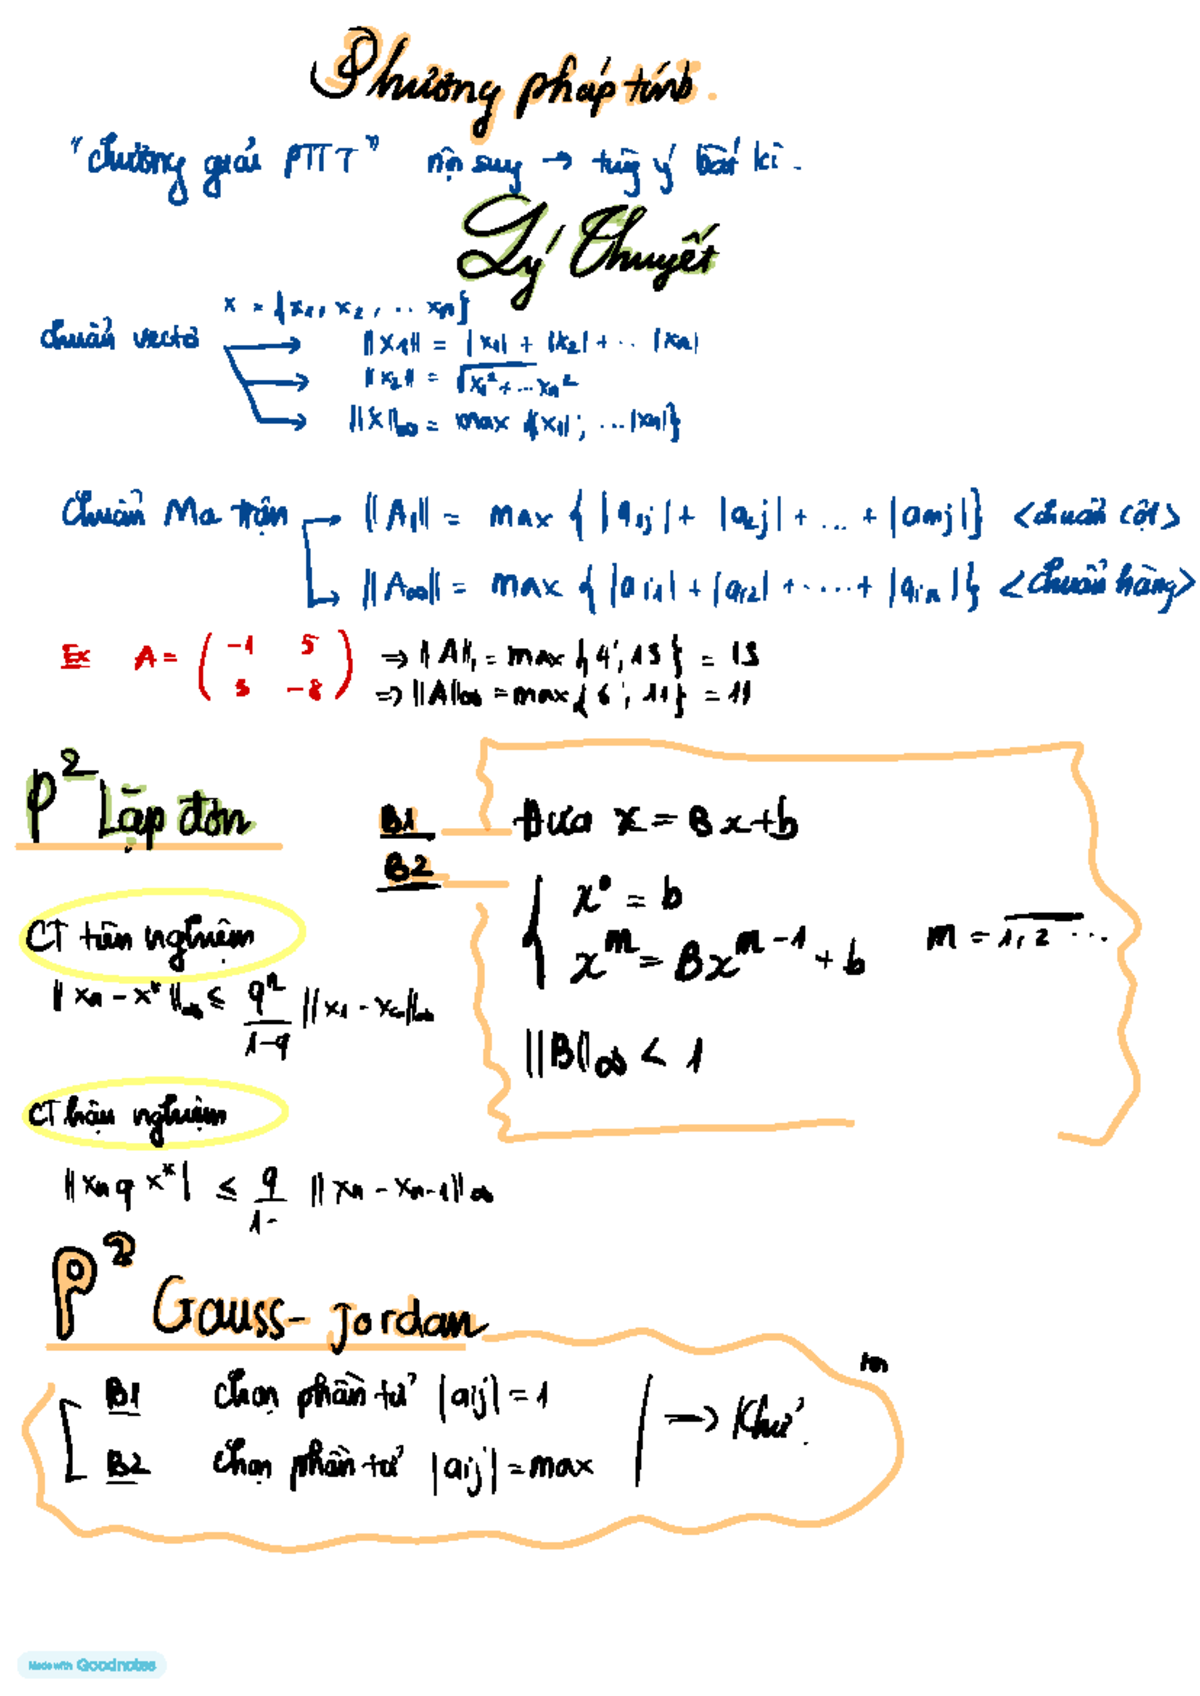 Phương pháp tính.
"chương giải PTTT" nội suy → tùy ý bất kì.
Lý thuyết
x = {x1, x2, ... xn}
chuẩn vectơ
||x1|| = |x1| + |x2| + ... |xn|
||x2|| = √x1² + ... xn²
||x||∞ = max {|x1|; ... |xn|}
chuẩn Ma trận → ||A1|| = max { |a1j| + |a2j| + ... + |amj| } <chuẩn cột>
→ ||A∞|| = max { |ai1| + |ai2| + ... + |ain| } <chuẩn hàng>
Ex A = ( -1 5 ) ⇒ ||A||1 = max {4; 13} = 13
( 3 -8 ) ⇒ ||A||∞ = max {6; 11} = 11
P² Lặp đơn
B1 Đưa x = Bx + b
B2 { x⁰ = b
x^m = Bx^(m-1) + b m = 1, 2 ...
||B||∞ < 1
CT tiên nghiệm
||xn - x*||∞ ≤ q^n / 1-q ||x1 - x0||∞
CT hậu nghiệm
||xn q x*| ≤ q / 1- ||xn - xn-1||∞
P² Gauss - Jordan
B1 chọn phần tử |aij| = 1
B2 chọn phần tử |aij| = max
→ Khử.
Made with Goodnotes